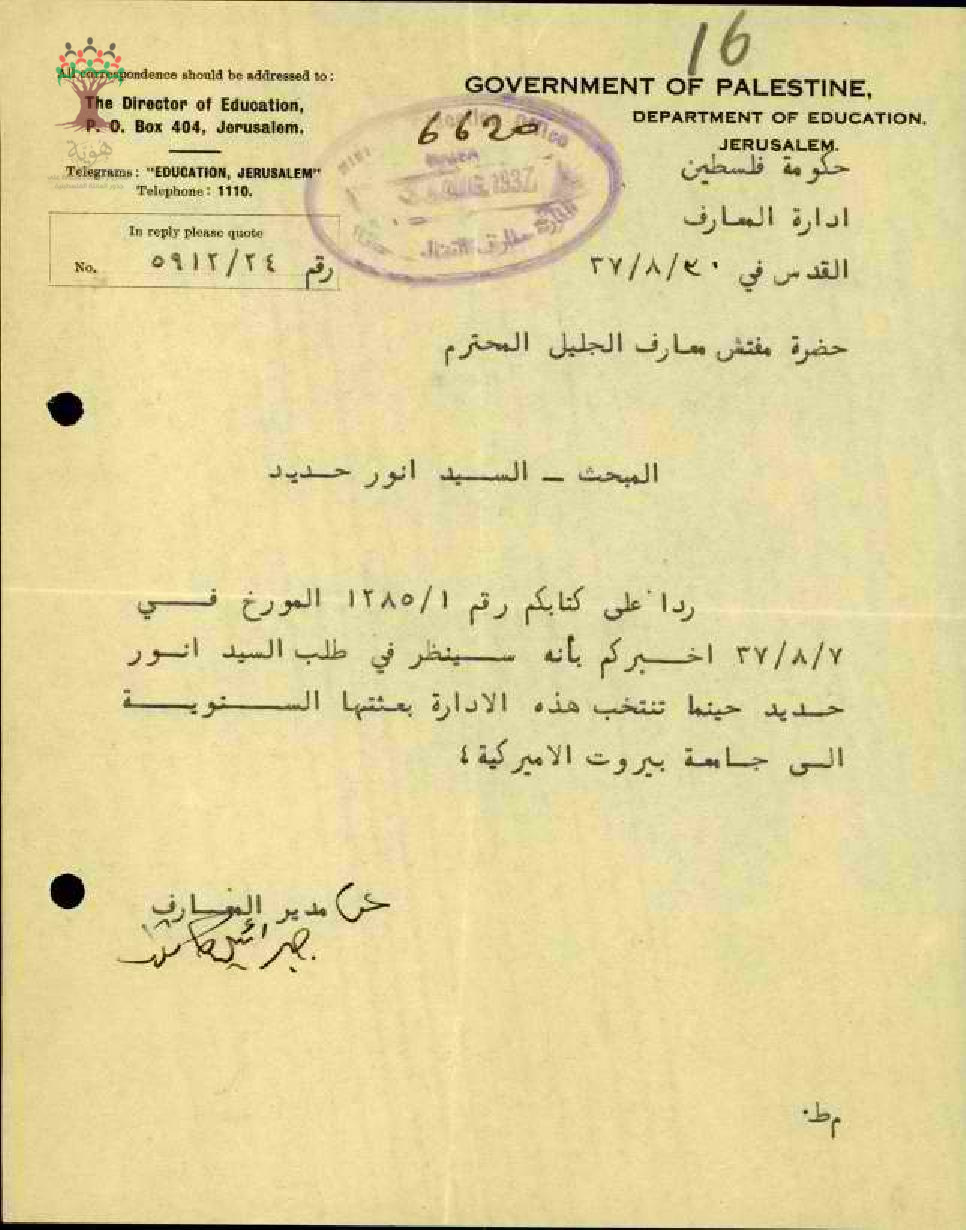 16
All correspondence should be addressed to:
The Director of Education,
P. O. Box 404, Jerusalem.
Telegrams: "EDUCATION, JERUSALEM"
Telephone: 1110.
In reply please quote
No. ٥٩١٢/٢٤ رقم
هوية
6620
AUG. 1937
GOVERNMENT OF PALESTINE,
DEPARTMENT OF EDUCATION,
JERUSALEM.
حكومة فلسطين
ادارة المعارف
القدس في ٣٧/٨/٣٠
حضرة مفتش معارف الجليل المحترم
المبحث – السيد انور حديد
ردا على كتابكم رقم ١٢٨٥/١ المورخ في
٣٧/٨/٧ اخبركم بأنه سينظر في طلب السيد انور
حديد حينما تنتخب هذه الادارة بعثتها السنوية
الى جامعة بيروت الاميركية ٤
عن مدير المعارف
جبرائيل
م ط.